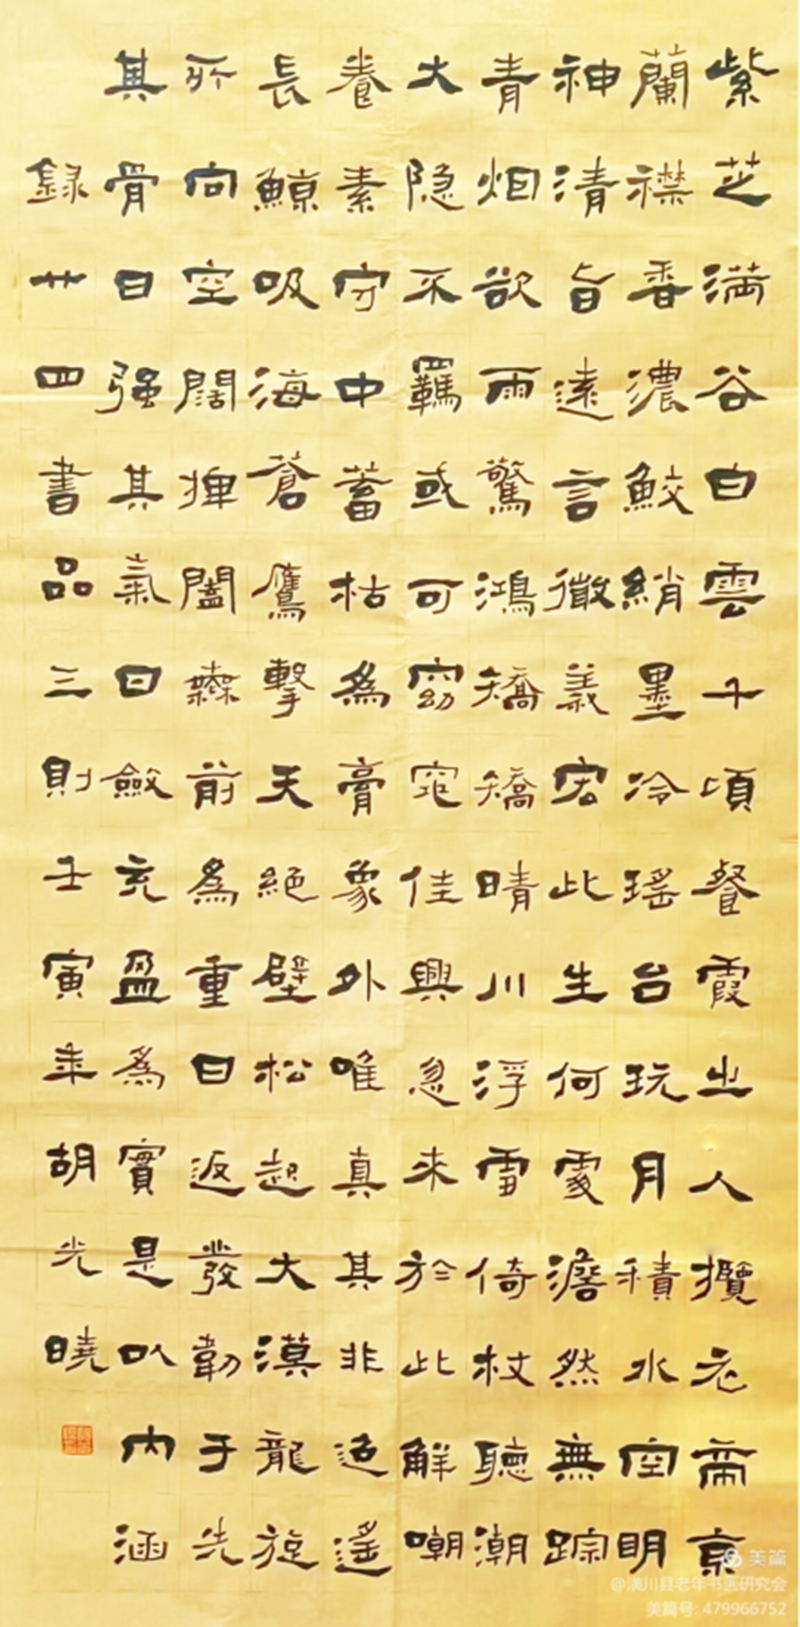 紫芝満谷白雲千頃餐霞之人攬衣帝京
蘭襟香濃鮫綃墨冷瑤台玩月積水空明
神清旨遠言微義宏此生何處澹然無踪
青烟欲雨驚鴻矯矯晴川浮雪倚杖聽潮
大隐不羈或可窈窕佳興忽來於此解嘲
養素守中蓄枯為膏象外唯真其非逍遙
長鯨吸海蒼鷹擊天絕壁松起大漠龍旋
所向空闊捭闔無前為重曰返發韌于先
其骨曰强其氣曰斂充盈為實是以内涵
錄廿四書品三則壬寅年胡光曉
美篇
@潢川县老年书画研究会
美篇号: 479966752